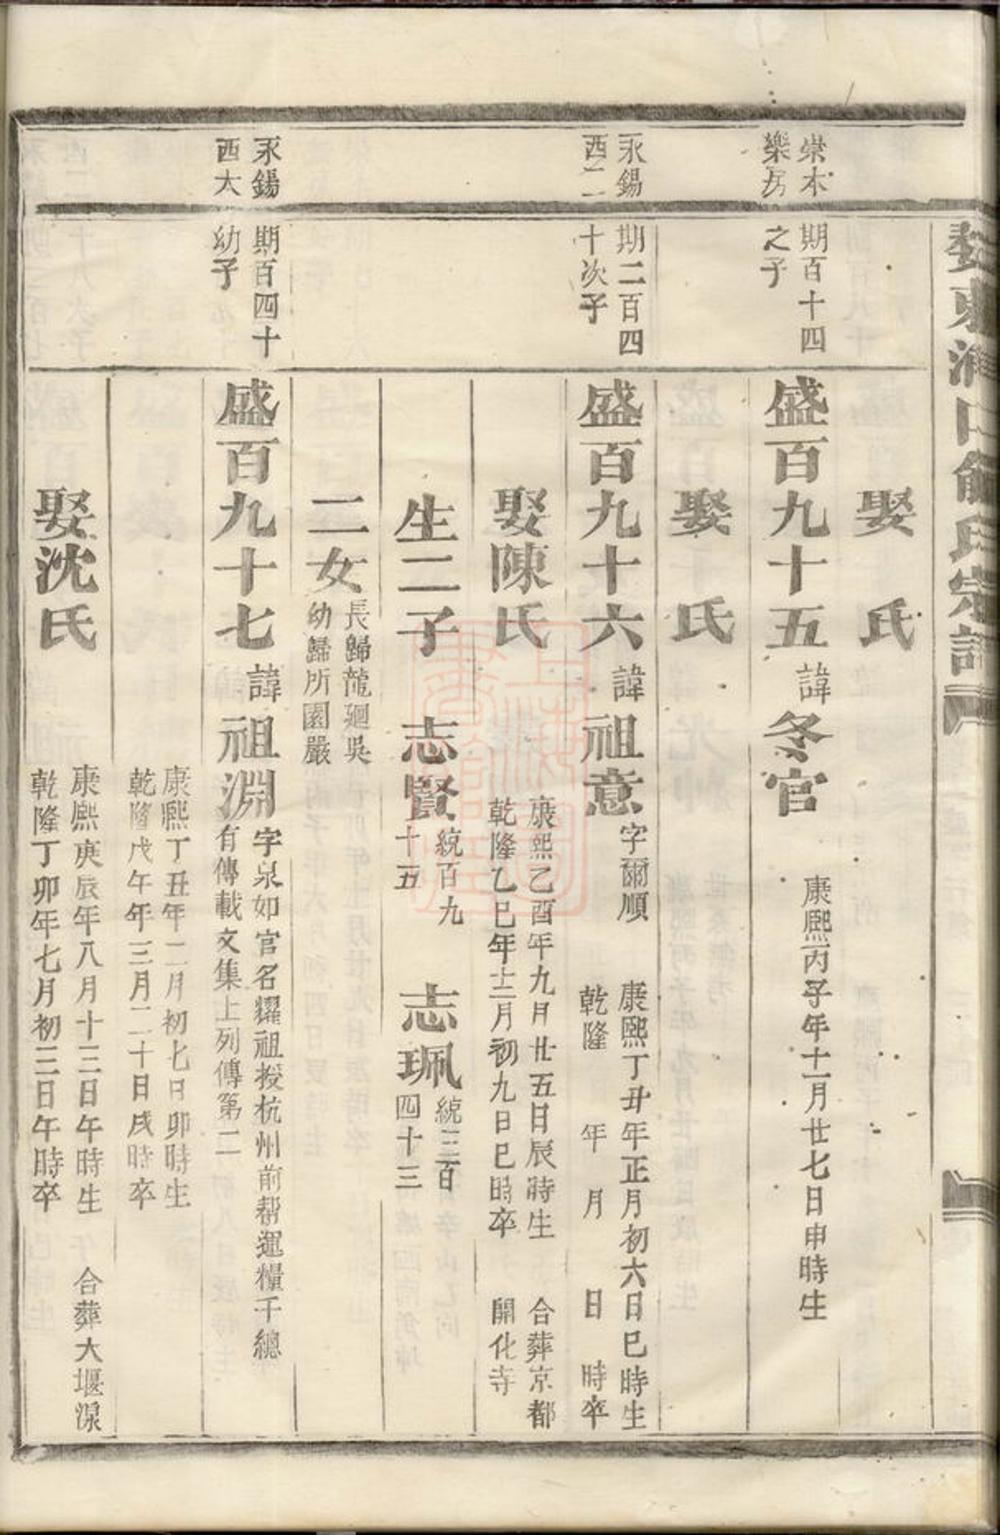 娶　氏
崇木
樂房
期百十四
之子
盛百九十五
諱
冬官
康熙丙子年十一月廿七日申時生
娶　氏
永錫
西二
期二百四
十次子
盛百九十六
諱
祖意
字爾順
康熙丁丑年正月初六日巳時生
乾隆　年　月　日　時卒
娶陳氏
康熙乙酉年九月廿五日辰時生
乾隆乙巳年十二月初九日巳時卒
合葬京都
開化寺
生二子
志賢
統百九
十五
志珮
統三百
四十三
二女
長歸龍廻吳
幼歸所園嚴
永錫
西大
期百四十
幼子
盛百九十七
諱
祖淵
字泉如官名耀祖授杭州前幇運糧千總
有傳載文集上列傳第二
康熙丁丑年二月初七日卯時生
乾隆戊午年三月二十日戌時卒
娶沈氏
康熙庚辰年八月十三日午時生
乾隆丁卯年七月初三日午時卒
合葬大堰